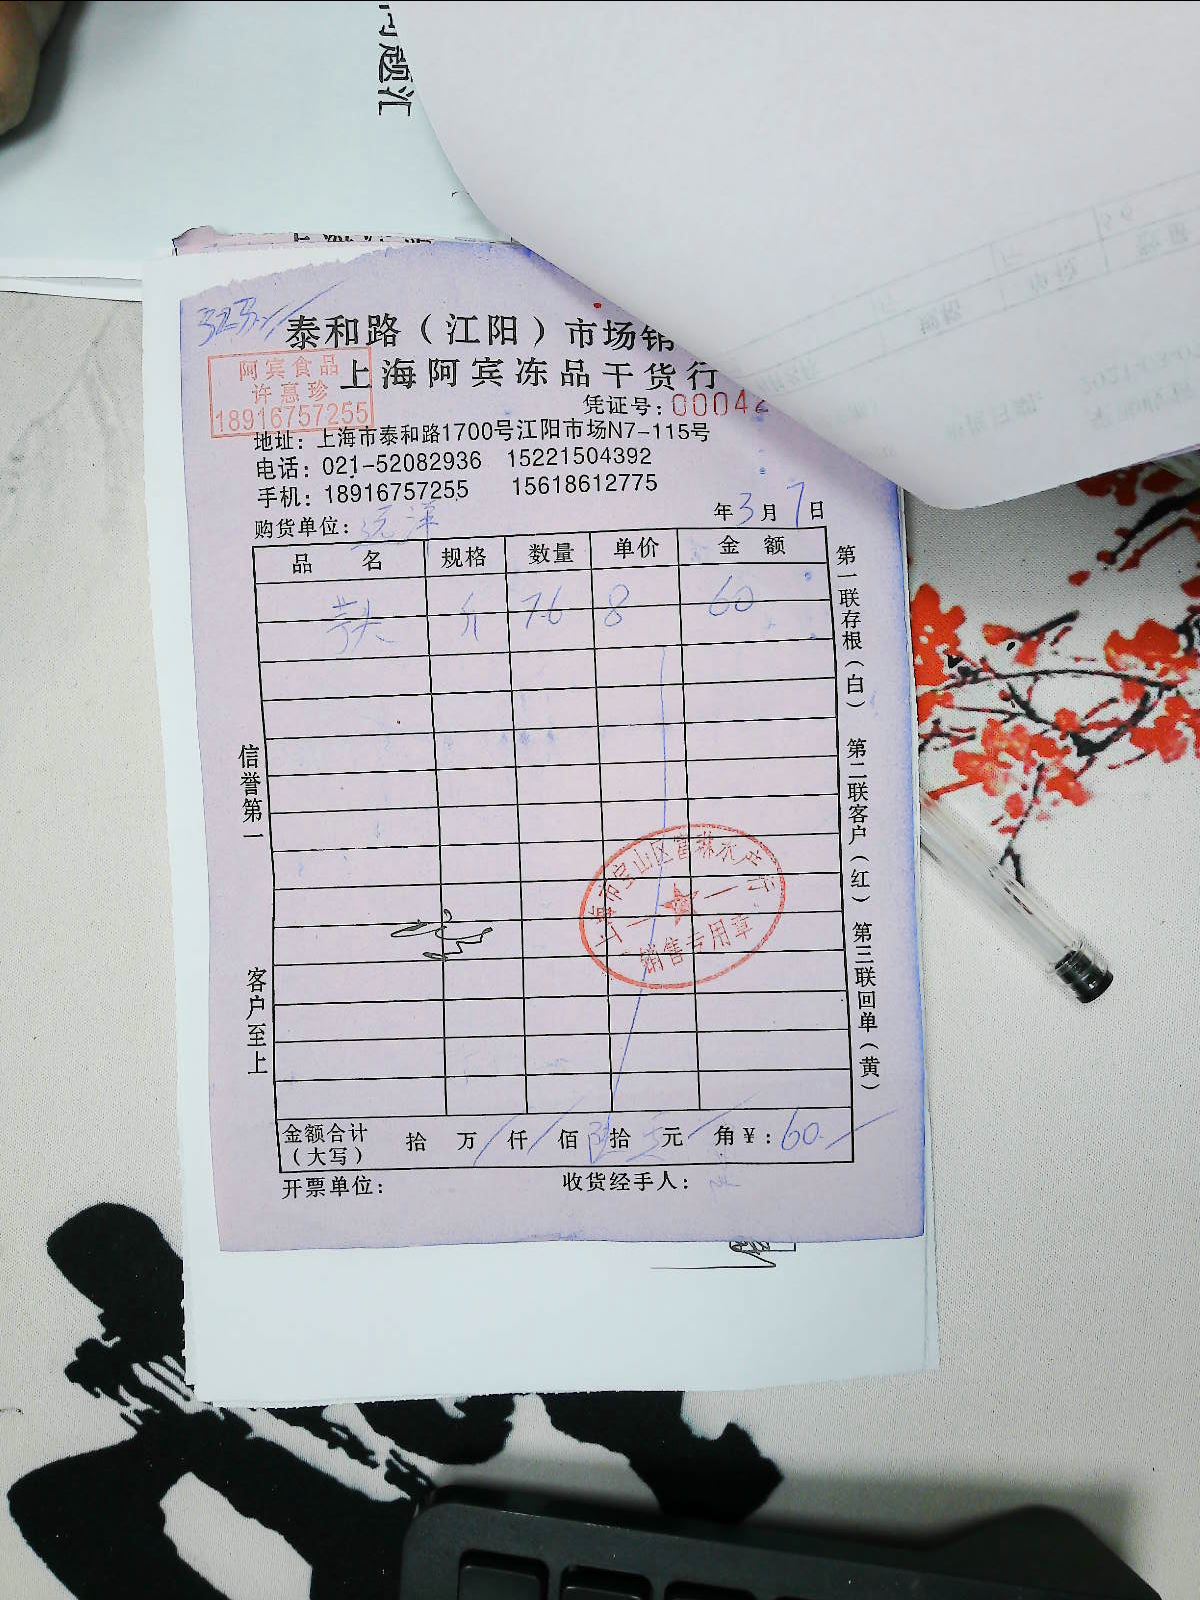 问题汇
泰和路（江阳）市场销
上海阿宾冻品干货行
阿宾食品
许惠珍
18916757255
凭证号：00042
地址：上海市泰和路1700号江阳市场N7-115号
电话：021-52082936 15221504392
手机：18916757255 15618612775
购货单位：远洋 年3月7日
品名 规格 数量 单价 金额
芋头 斤 7.6 8 60
第一联存根（白） 第二联客户（红） 第三联回单（黄）
信誉第一
客户至上
销售专用章
金额合计（大写） 拾 万 仟 佰 陆拾 元 角 ¥：60
开票单位： 收货经手人：